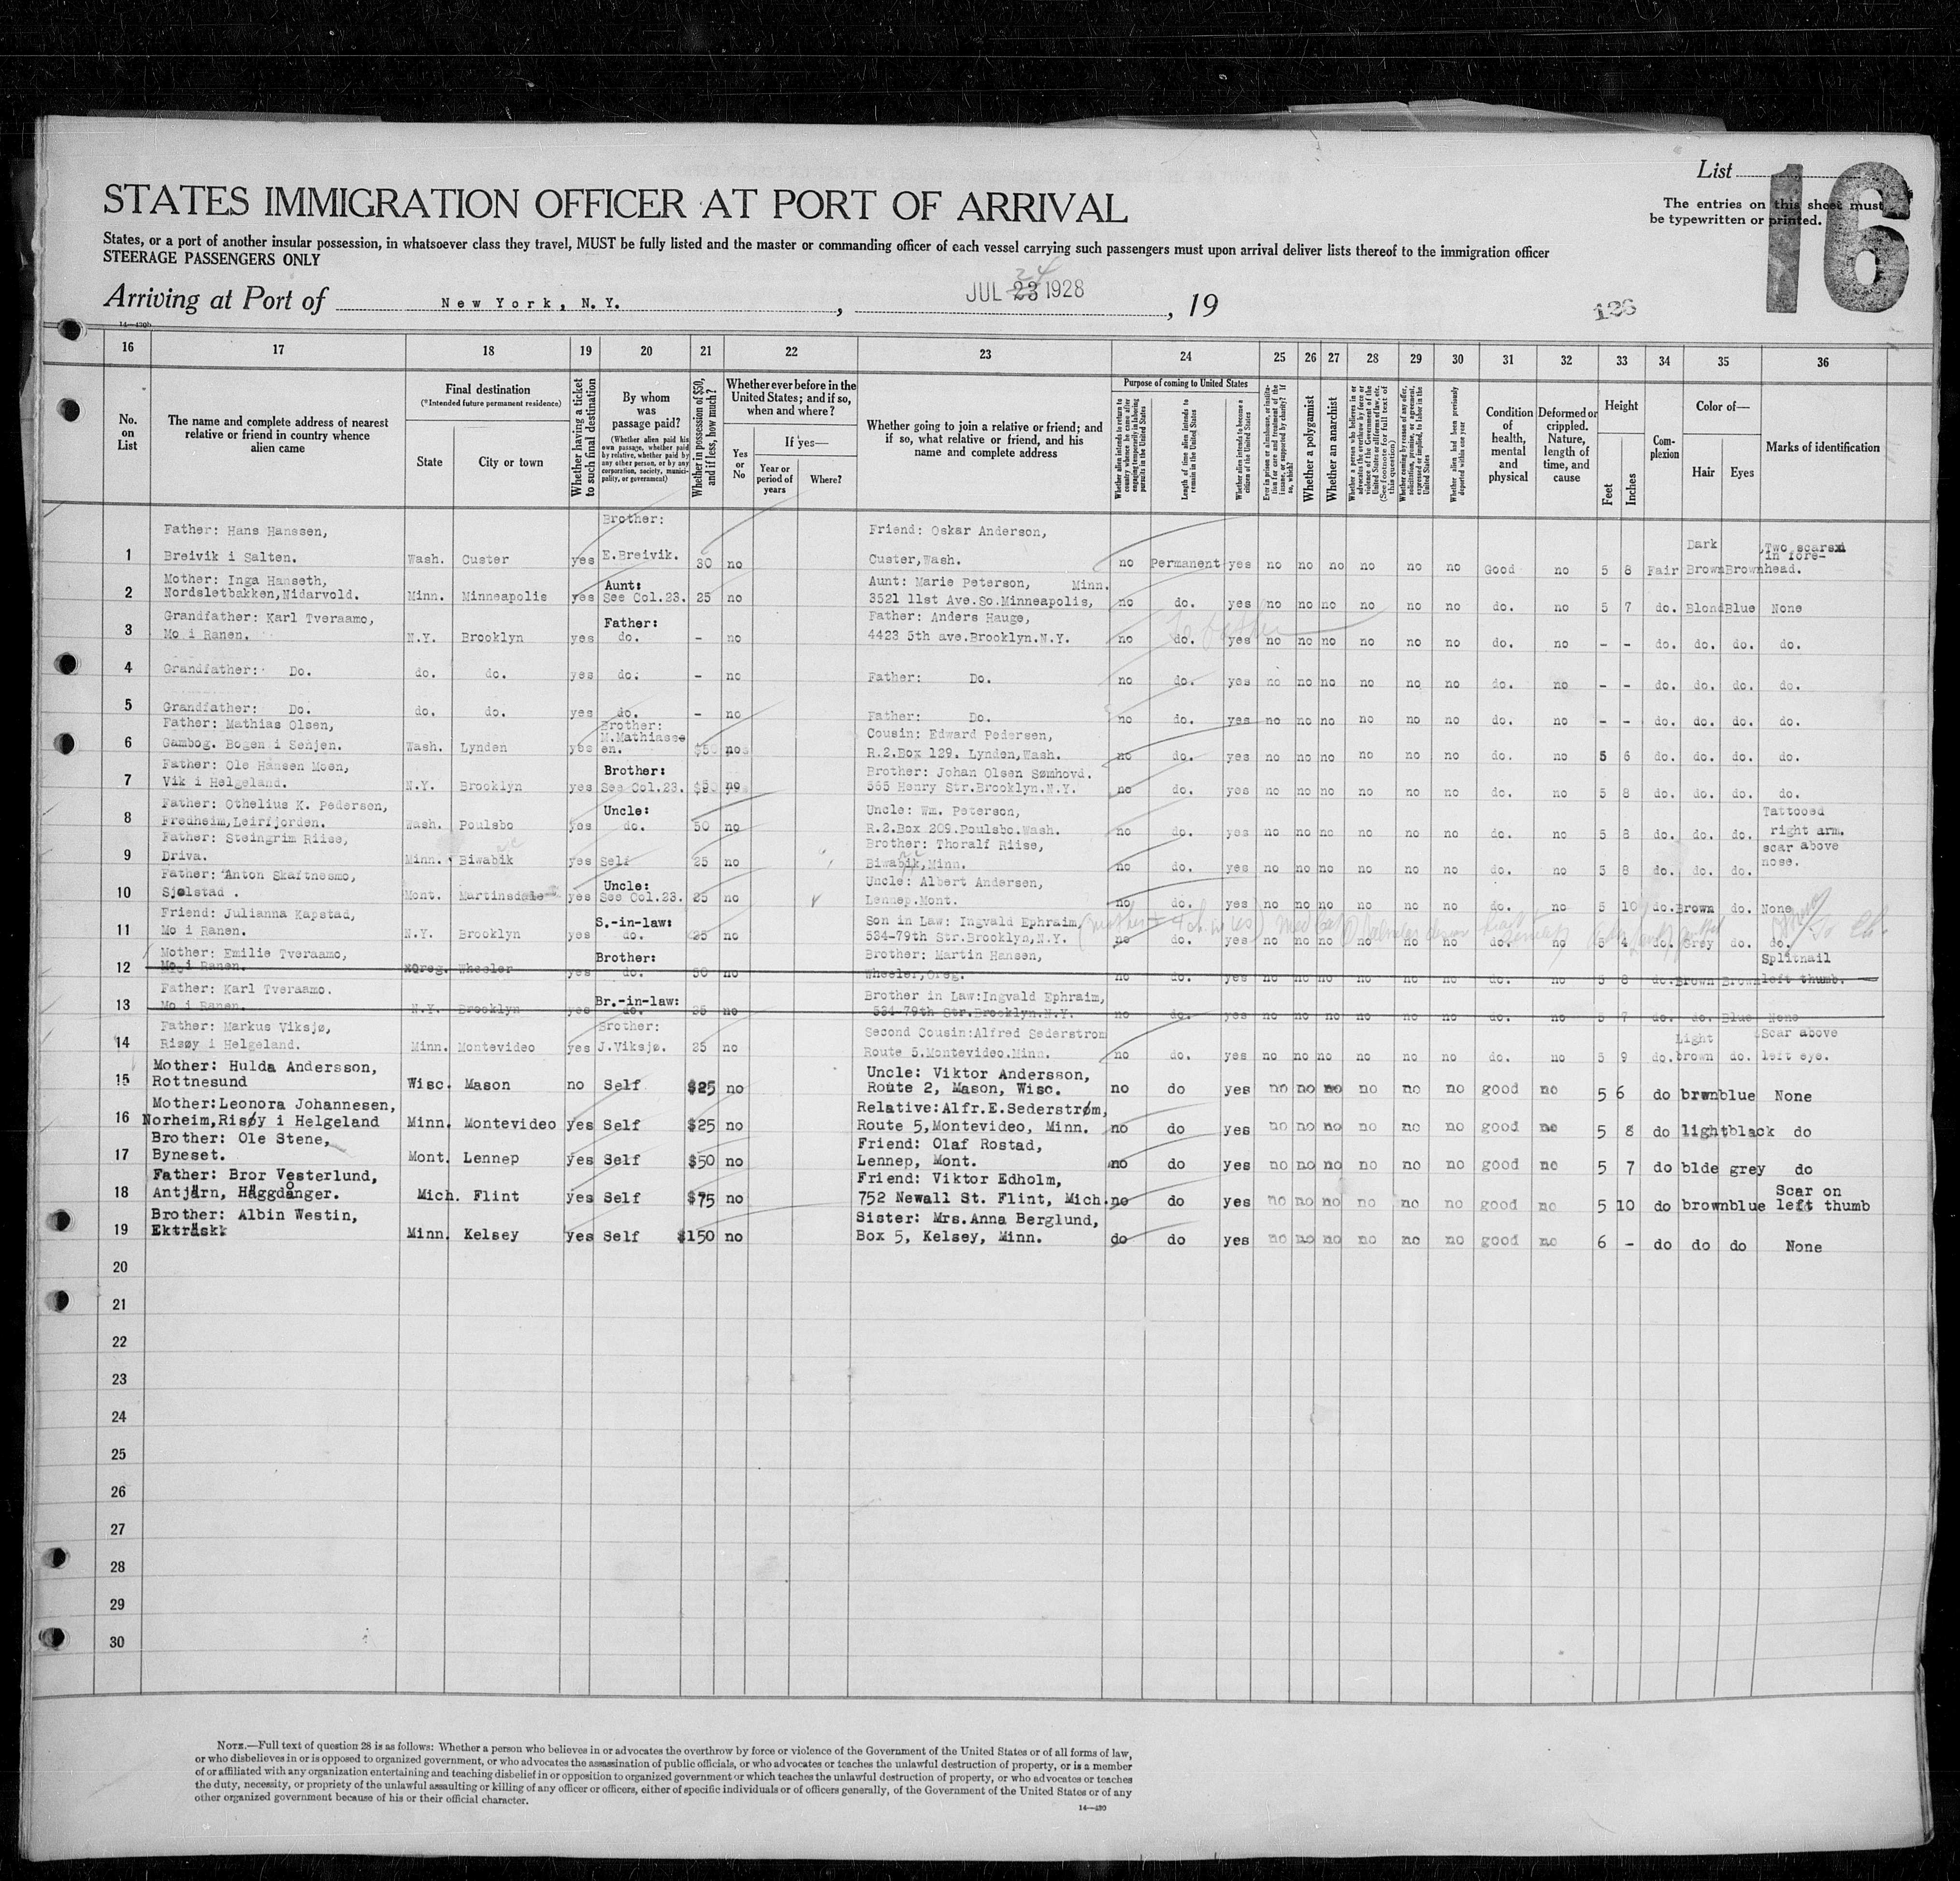 List
16
The entries on this sheet must
be typewritten or printed.
STATES IMMIGRATION OFFICER AT PORT OF ARRIVAL
States, or a port of another insular possession, in whatsoever class they travel, MUST be fully listed and the master or commanding officer of each vessel carrying such passengers must upon arrival deliver lists thereof to the immigration officer
STEERAGE PASSENGERS ONLY
Arriving at Port of New York, N.Y. , JUL 23 1928 , 19
24
126
14—430b
16 17 18 19 20 21 22 23 24 25 26 27 28 29 30 31 32 33 34 35 36
No. on List
The name and complete address of nearest relative or friend in country whence alien came
Final destination
(*Intended future permanent residence)
State
City or town
Whether having a ticket to such final destination
By whom was passage paid?
(Whether alien paid his own passage, whether paid by relative, whether paid by any other person, or by any corporation, society, municipality, or government)
Whether in possession of $50, and if less, how much?
Whether ever before in the United States; and if so, when and where?
Yes or No
If yes—
Year or period of years
Where?
Whether going to join a relative or friend; and if so, what relative or friend, and his name and complete address
Purpose of coming to United States
Whether alien intends to return to country whence he came after engaging temporarily in laboring pursuits in the United States
Length of time alien intends to remain in the United States
Whether alien intends to become a citizen of the United States
Ever in prison or almshouse, or institution for care and treatment of the insane, or supported by charity? If so, which?
Whether a polygamist
Whether an anarchist
Whether a person who believes in or advocates the overthrow by force or violence of the Government of the United States or all forms of law, etc. (See footnote for full text of this question)
Whether coming by reason of any offer, solicitation, promise, or agreement, expressed or implied, to labor in the United States
Whether alien had been previously deported within one year
Condition of health, mental and physical
Deformed or crippled. Nature, length of time, and cause
Height
Feet
Inches
Complexion
Color of—
Hair
Eyes
Marks of identification
Father: Hans Hanssen, Brother: Friend: Oskar Anderson, Dark Two scars
1 Breivik i Salten. Wash. Custer yes E.Breivik. 30 no Custer,Wash. no Permanent yes no no no no no no Good no 5 8 Fair Brown Brown in fore-head.
Mother: Inga Hanseth, Aunt: Aunt: Marie Peterson, Minn.
2 Nordsletbakken,Nidarvold. Minn. Minneapolis yes See Col.23. 25 no 3521 11st Ave.So.Minneapolis, no do. yes no no no no no no do. no 5 7 do. Blond Blue None
Grandfather: Karl Tveraamo, Father: Father: Anders Hauge,
3 Mo i Ranen. N.Y. Brooklyn yes do. - no 4423 5th ave.Brooklyn.N.Y. no do. yes no no no no no no do. no - - do. do. do. do.
4 Grandfather: Do. do. do. yes do. - no Father: Do. no do. yes no no no no no no do. no - - do. do. do. do.
5 Grandfather: Do. do. do. yes do. - no Father: Do. no do. yes no no no no no no do. no - - do. do. do. do.
Father: Mathias Olsen, Brother: M.Mathiasse Cousin: Edward Pedersen,
6 Gambog. Bogen i Senjen. Wash. Lynden yes en. $50 no R.2.Box 129. Lynden,Wash. no do. yes no no no no no no do. no 5 6 do. do. do. do.
Father: Ole Hansen Moen, Brother: Brother: Johan Olsen Sømhovd.
7 Vik i Helgeland. N.Y. Brooklyn yes See Col.23. $50 no 565 Henry Str.Brooklyn.N.Y. no do. yes no no no no no no do. no 5 8 do. do. do. do.
Father: Othelius K. Pedersen, Uncle: Uncle: Wm. Peterson, Tattooed
8 Fredheim,Leirfjorden. Wash. Poulsbo yes do. 50 no R.2.Box 209.Poulsbo.Wash. no do. yes no no no no no no do. no 5 8 do. do. do. right arm.
Father: Steingrim Riise, Brother: Thoralf Riise, scar above
9 Driva. Minn. Biwabik yes Self 25 no Biwabik,Minn. no do. yes no no no no no no do. no 5 8 do. do. do. nose.
Father: Anton Skaftnesmo, Uncle: Uncle: Albert Andersen,
10 Sjølstad . Mont. Martinsdale yes See Col.23. 25 no Lennep.Mont. no do. yes no no no no no no do. no 5 10 do. Brown do. None
Friend: Julianna Kapstad, S.-in-law: Son in Law: Ingvald Ephraim,
11 Mo i Ranen. N.Y. Brooklyn yes do. 25 no 534-79th Str.Brooklyn,N.Y. no do. yes no no no no no no do. no 5 4 do. Grey do. do.
Mother: Emilie Tveraamo, Brother: Brother: Martin Hansen, Splitnail
12 Mo i Ranen. Oreg. Wheeler yes do. 50 no Wheeler,Oreg. no do. yes no no no no no no do. no 5 8 do. Brown Brown left thumb.
Father: Karl Tveraamo. Br.-in-law: Brother in Law:Ingvald Ephraim,
13 Mo i Ranen. N.Y. Brooklyn yes do. 25 no 534-79th Str.Brooklyn.N.Y. no do. yes no no no no no no do. no 5 7 do. do. Blue None
Father: Markus Viksjø, Brother: Second Cousin:Alfred Sederstrom Light Scar above
14 Risøy i Helgeland. Minn. Montevideo yes J.Viksjø. 25 no Route 5.Montevideo.Minn. no do. yes no no no no no no do. no 5 9 do. brown do. left eye.
Mother: Hulda Andersson, Uncle: Viktor Andersson,
15 Rottnesund Wisc. Mason no Self $25 no Route 2, Mason, Wisc. no do yes no no no no no no good no 5 6 do brwn blue None
Mother:Leonora Johannesen, Relative:Alfr.E.Sederstrøm,
16 Norheim,Risøy i Helgeland Minn. Montevideo yes Self $25 no Route 5,Montevideo, Minn. no do yes no no no no no no good no 5 8 do light black do
Brother: Ole Stene, Friend: Olaf Rostad,
17 Byneset. Mont. Lennep yes Self $50 no Lennep, Mont. no do yes no no no no no no good no 5 7 do blde grey do
Father: Bror Vesterlund, Friend: Viktor Edholm, Scar on
18 Antjärn, Häggdånger. Mich. Flint yes Self $75 no 752 Newall St. Flint, Mich. no do yes no no no no no no good no 5 10 do brown blue left thumb
Brother: Albin Westin, Sister: Mrs.Anna Berglund,
19 Ekträsk Minn. Kelsey yes Self $150 no Box 5, Kelsey, Minn. do do yes no no no no no no good no 6 - do do do None
20
21
22
23
24
25
26
27
28
29
30
NOTE.—Full text of question 28 is as follows: Whether a person who believes in or advocates the overthrow by force or violence of the Government of the United States or of all forms of law,
or who disbelieves in or is opposed to organized government, or who advocates the assassination of public officials, or who advocates or teaches the unlawful destruction of property, or is a member
of or affiliated with any organization entertaining and teaching disbelief in or opposition to organized government or which teaches the unlawful destruction of property, or who advocates or teaches
the duty, necessity, or propriety of the unlawful assaulting or killing of any officer or officers, either of specific individuals or of officers generally, of the Government of the United States or of any
other organized government because of his or their official character.
14—430